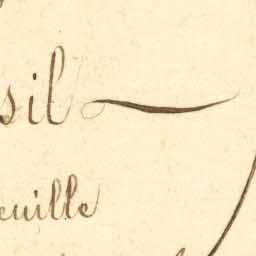 sil
euille